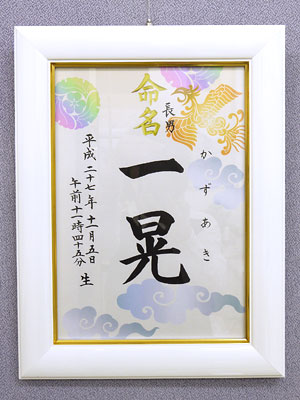 命名
長男
かずあき
一晃
平成二十七年十一月五日
午前十一時四十五分 生